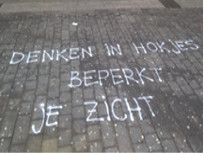 DENKEN IN HOKJES
BEPERKT
JE ZICHT